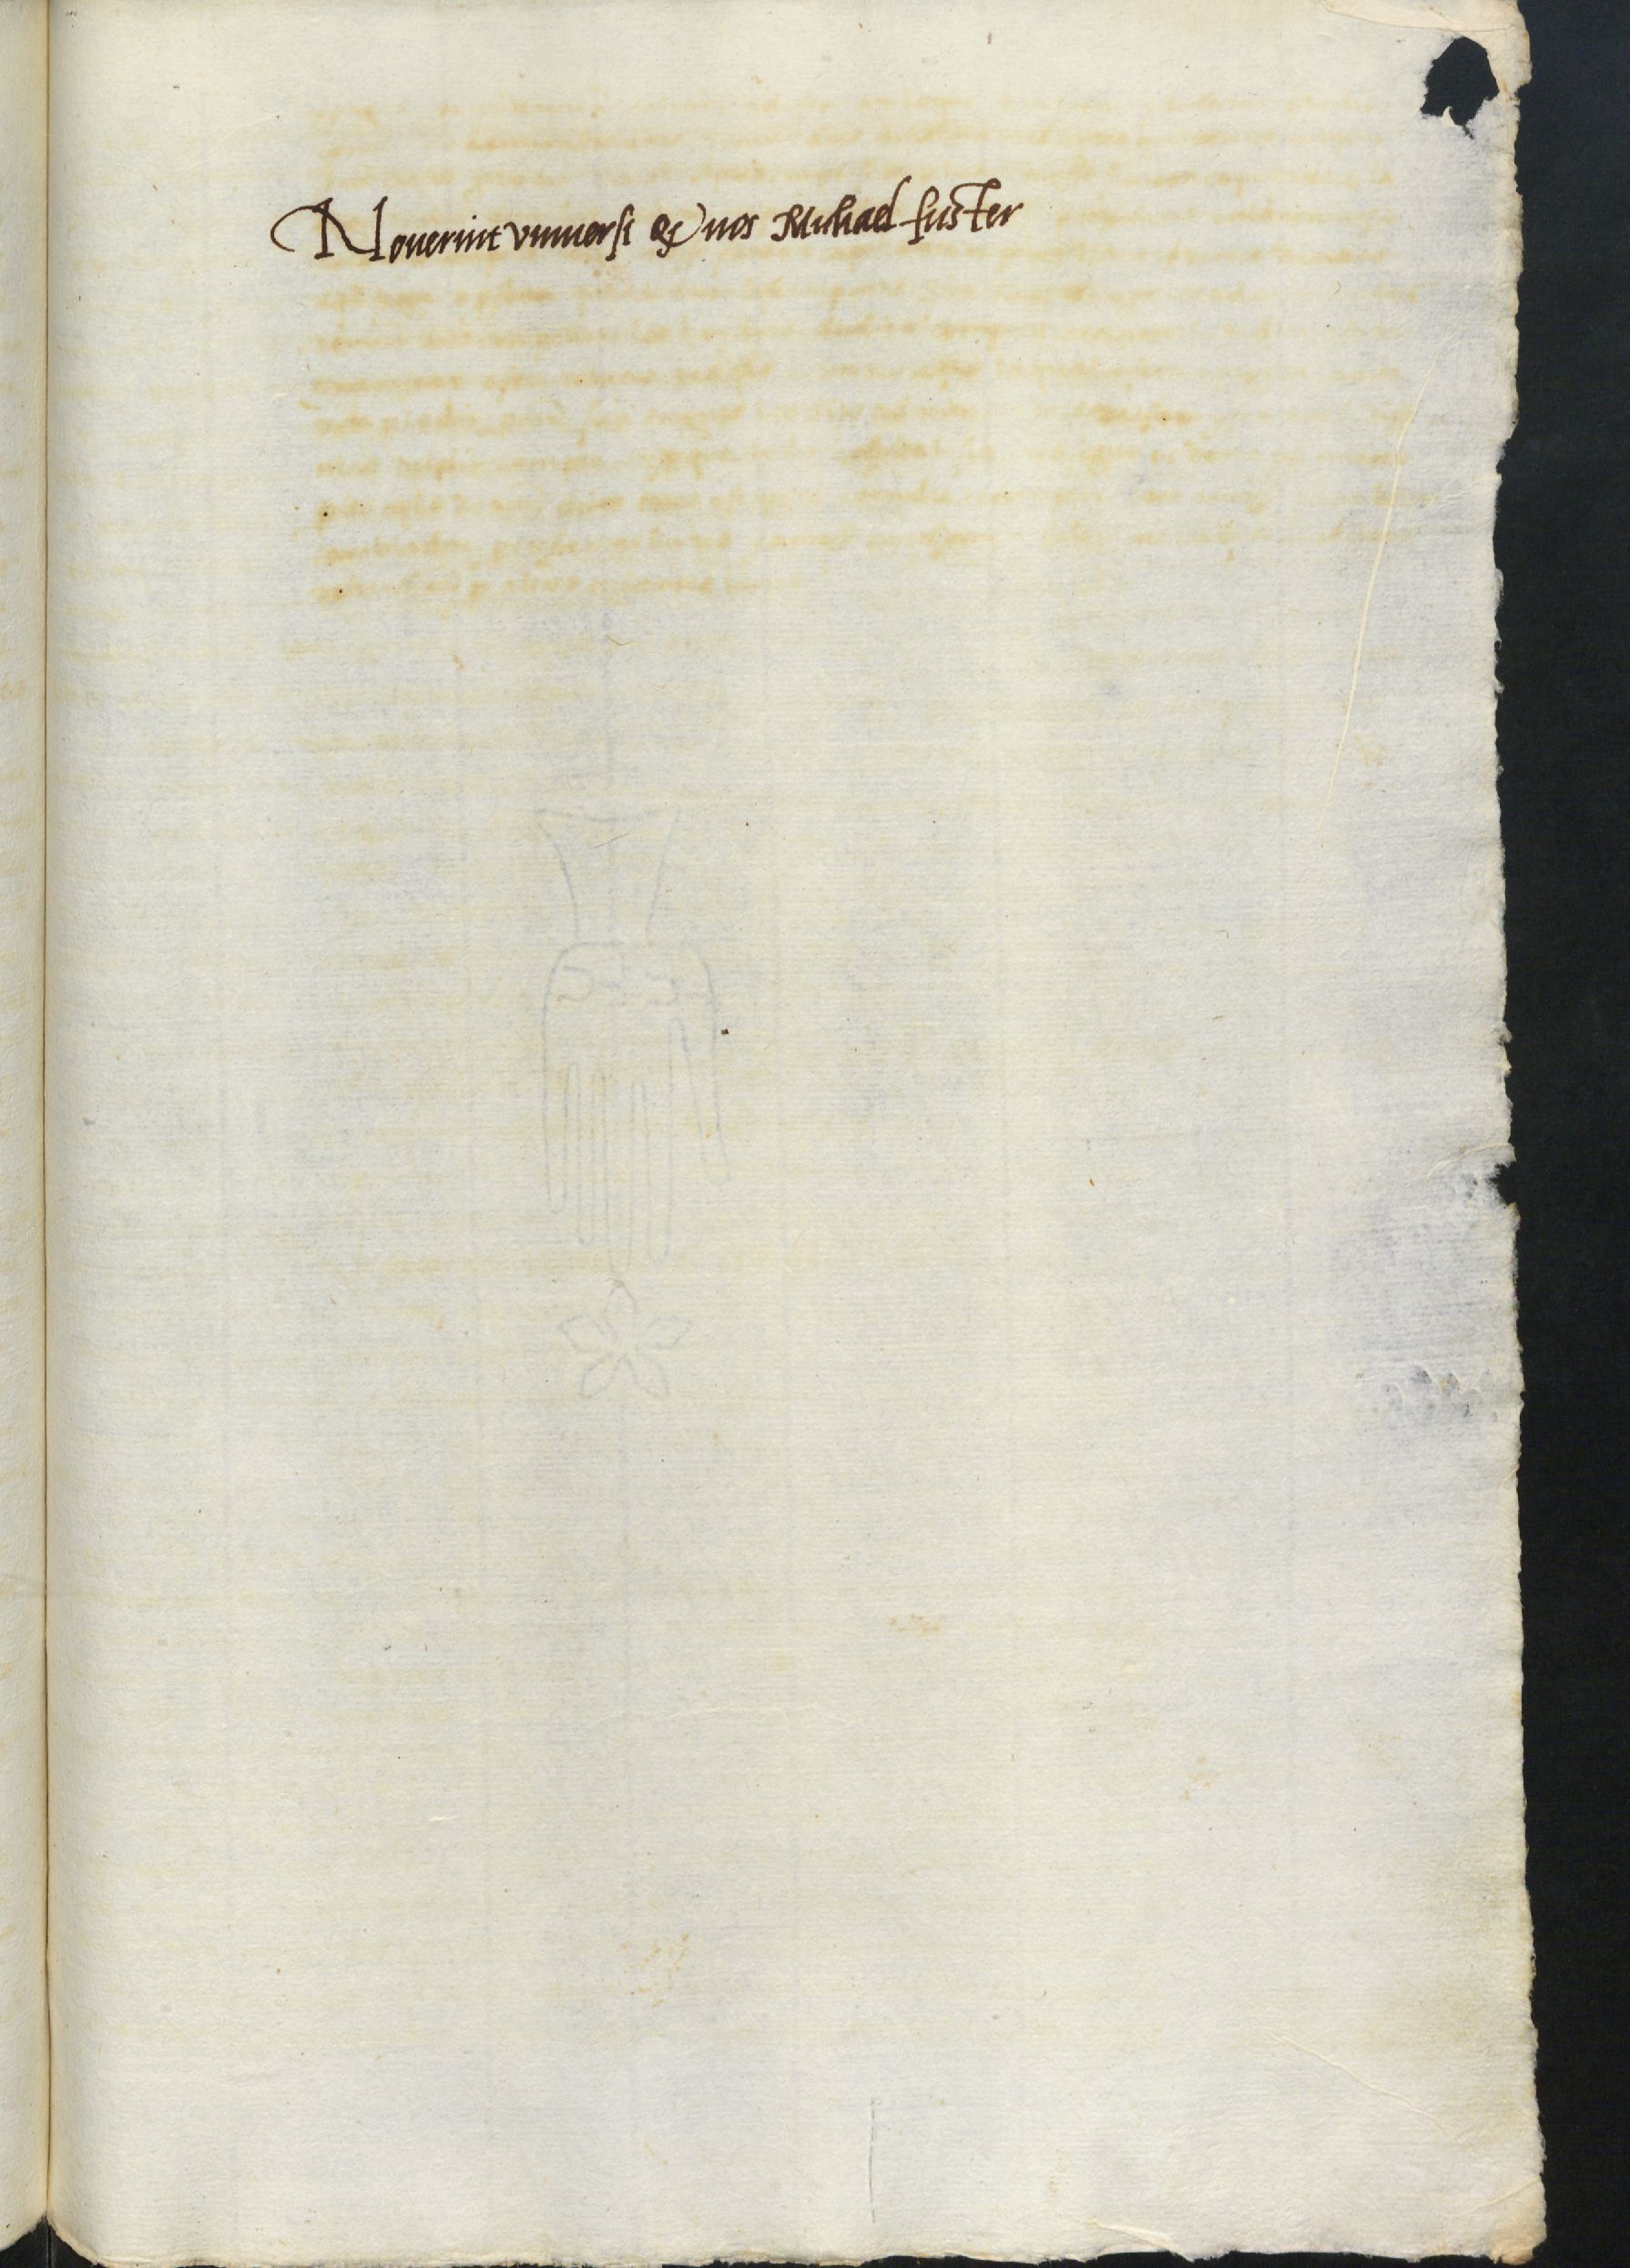 Nouerint vniuersi q̃ nos Michael fuster